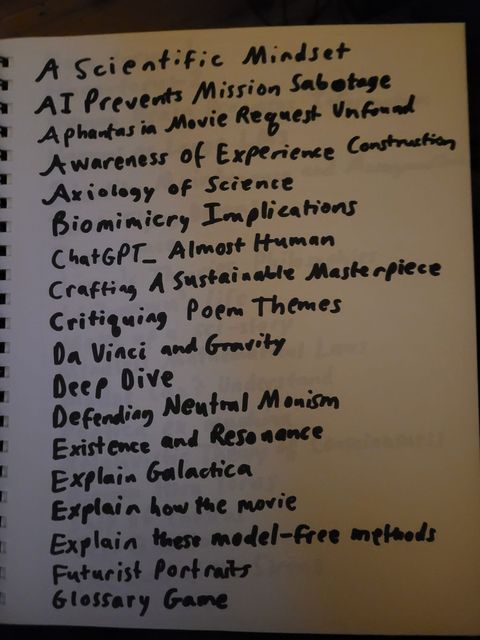 A Scientific Mindset
AI Prevents Mission Sabotage
Aphantasia Movie Request Unfound
Awareness of Experience Construction
Axiology of Science
Biomimicry Implications
ChatGPT_ Almost Human
Crafting A Sustainable Masterpiece
Critiquing Poem Themes
Da Vinci and Gravity
Deep Dive
Defending Neutral Monism
Existence and Resonance
Explain Galactica
Explain how the movie
Explain these model-free methods
Futurist Portraits
Glossary Game